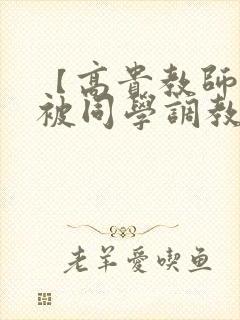 【高貴教師
被同學調教
老羊愛喫鱼